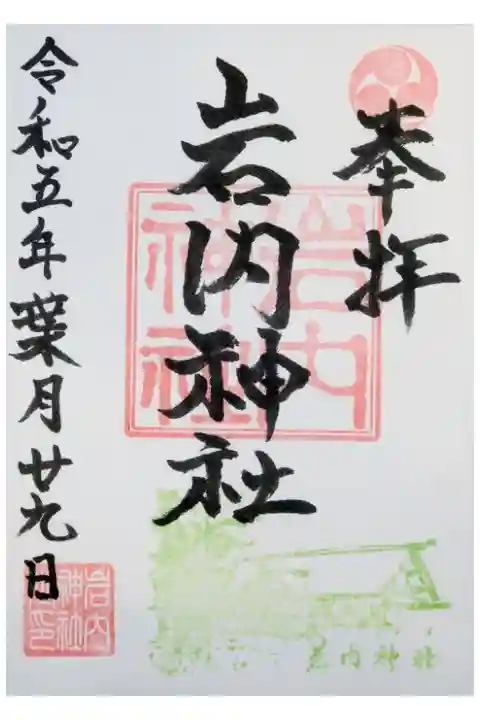 奉拝
岩内神社
岩内神社
令和五年葉月廿九日
岩内神社
岩内神社